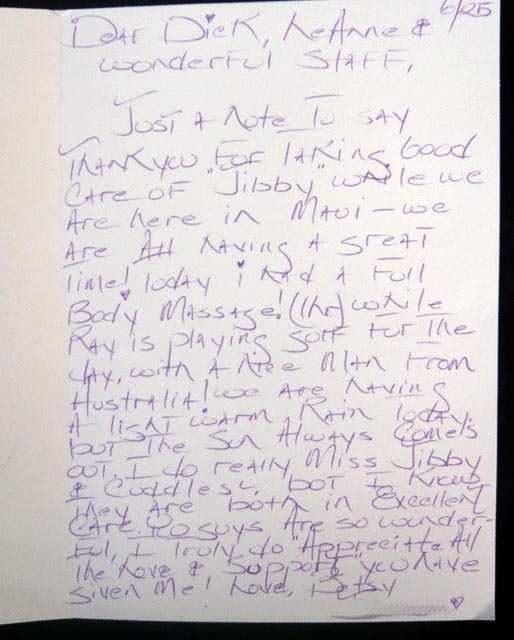 6/25
Dear Dick, LeAnne &
wonderful Staff,
Just a Note To say
Thankyou For Taking Good
Care of "Jibby" while we
Are here in Maui - we
Are All having A great
Time! Today i had a Full
Body Massage! (1hr) while
Ray is playing golf For The
day, with A Nice Man From
Australia! we Are having
A light warm Rain Today,
but The Sun Always Comes
out. I do really Miss Jibby
& Cuddles, but I Know
They Are both in Excellent
Care. You guys Are so wonder-
ful, I Truly do "Appreciate All
The Love & Support" you have
given Me! Love, Betsy